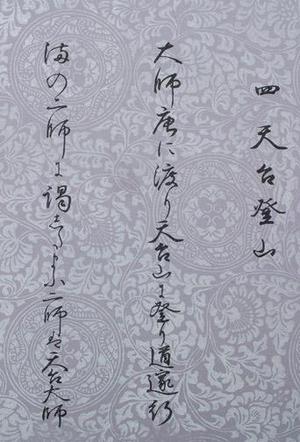 四 天台登山
大師唐に渡り天台山に登り道邃行
満の二師に謁したまふ二師は天台大師